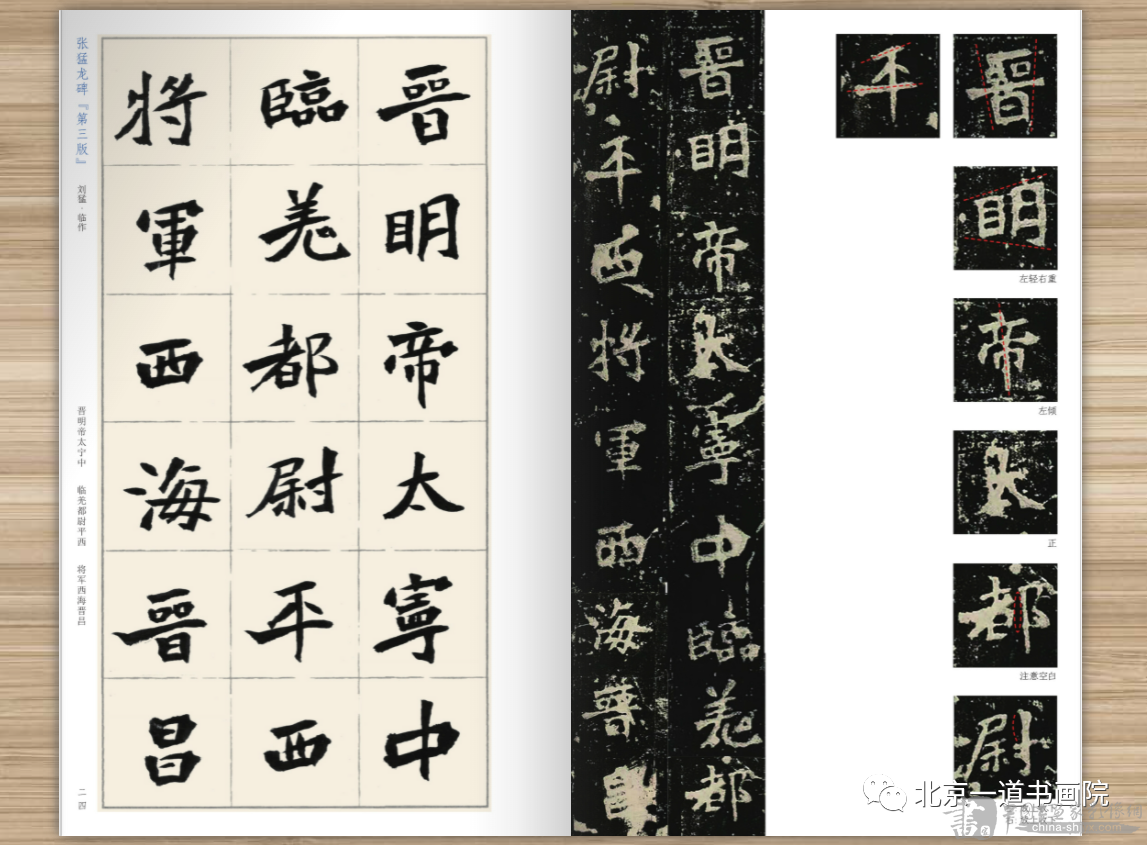 张猛龙碑『第三版』
刘猛·临作
晋明帝太宁中 临羌都尉平西 将军西海晋昌
二四
晉明帝太寧中
臨羌都尉平西
將軍西海晉昌
晉明帝太寧中臨羌都
尉平西將軍西海晉昌
晉
平
明
左轻右重
帝
左倾
太
正
都
注意空白
尉
北京一道书画院